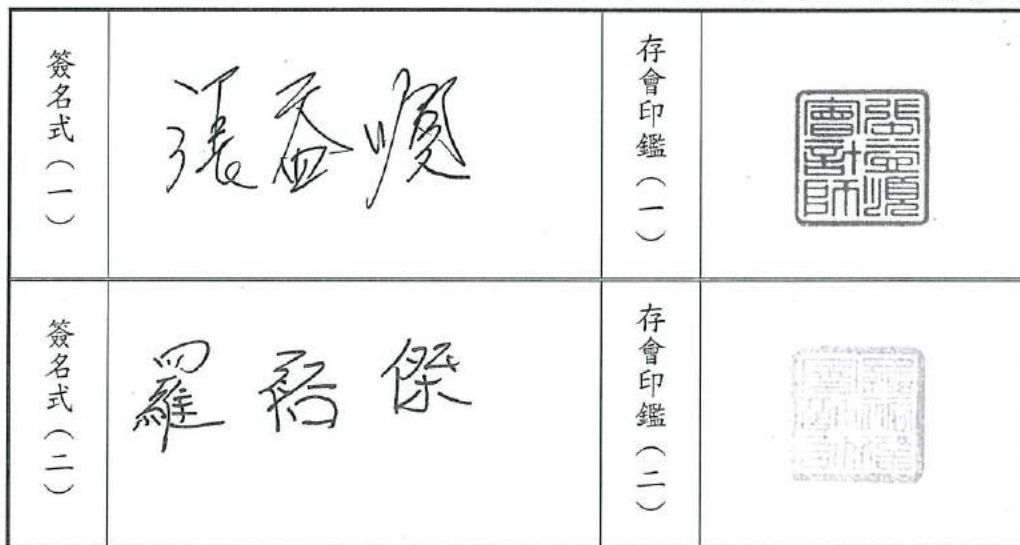 簽名式（一）
張益順
存會印鑑（一）
張益順
會計師
簽名式（二）
羅裕傑
存會印鑑（二）